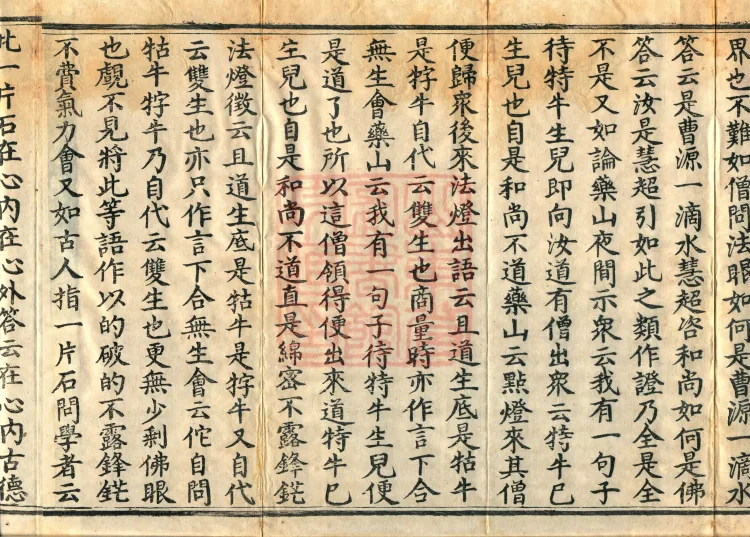 界也不難如僧問法眼如何是曹源一滴水
答云是曹源一滴水慧超咨和尚如何是佛
答云汝是慧超引如此之類作證乃全是全
不是又如論藥山夜間示衆云我有一句子
待特牛生兒即向汝道有僧出衆云特牛已
生兒也自是和尚不道藥山云點燈來其僧
便歸衆後來法燈出語云且道生底是牯牛
是牸牛自代云雙生也商量時亦作言下合
無生會藥山云我有一句子待特牛生兒便
是道了也所以這僧領得便出來道特牛已
生兒也自是和尚不道直是綿密不露鋒鋩
法燈徵云且道生底是牯牛是牸牛又自代
云雙生也亦只作言下合無生會云佗自問
牯牛牸牛乃自代云雙生也更無少剩佛眼
也覷不見將此等語作以的破的不露鋒鋩
不費氣力會又如古人指一片石問學者云
此一片石在心內在心外答云在心內古德